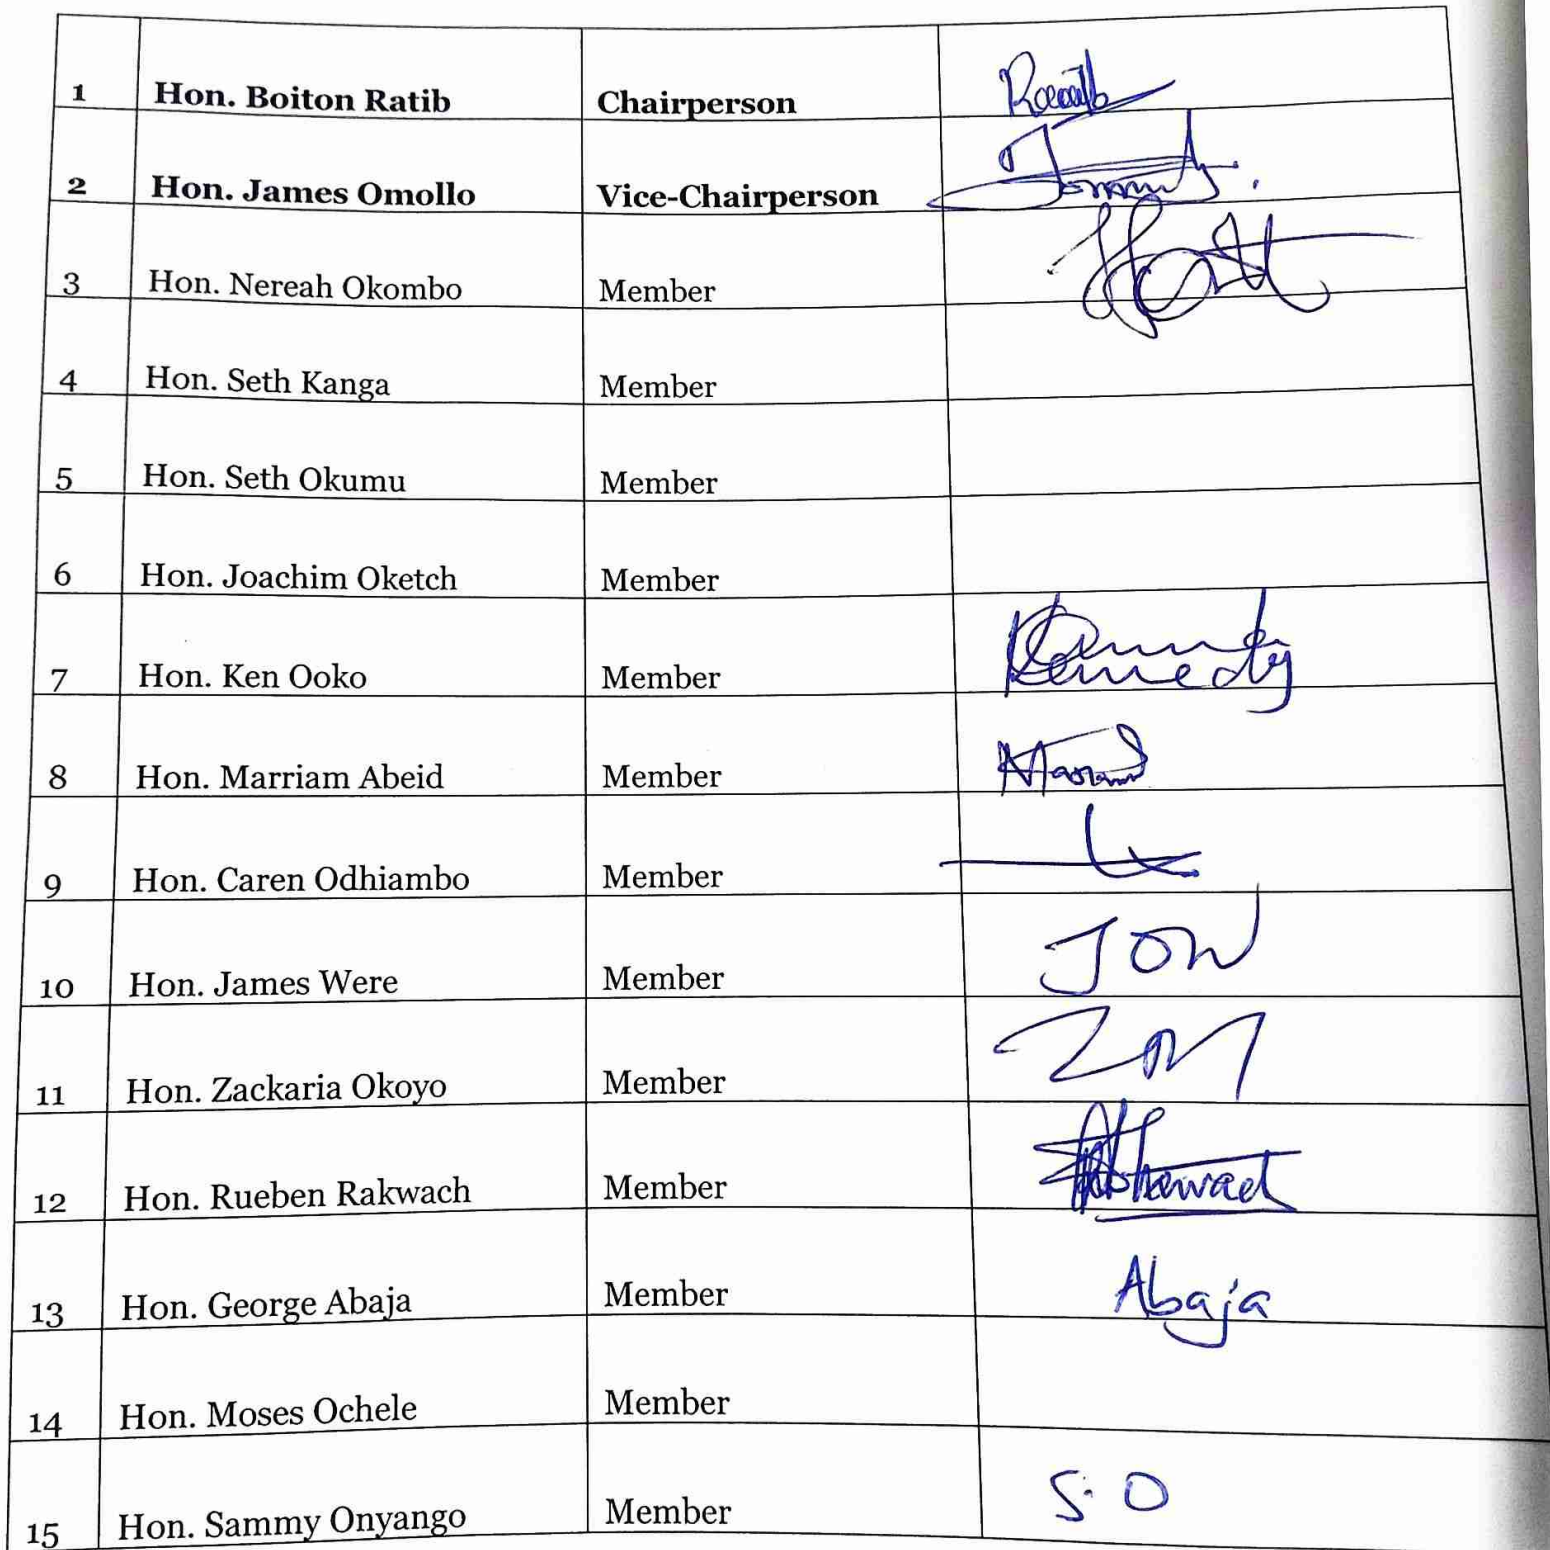 1 Hon. Boiton Ratib Chairperson
2 Hon. James Omollo Vice-Chairperson
3 Hon. Nereah Okombo Member
4 Hon. Seth Kanga Member
5 Hon. Seth Okumu Member
6 Hon. Joachim Oketch Member
7 Hon. Ken Ooko Member Kennedy
8 Hon. Marriam Abeid Member
9 Hon. Caren Odhiambo Member
10 Hon. James Were Member JOW
11 Hon. Zackaria Okoyo Member
12 Hon. Rueben Rakwach Member
13 Hon. George Abaja Member Abaja
14 Hon. Moses Ochele Member
15 Hon. Sammy Onyango Member S.O